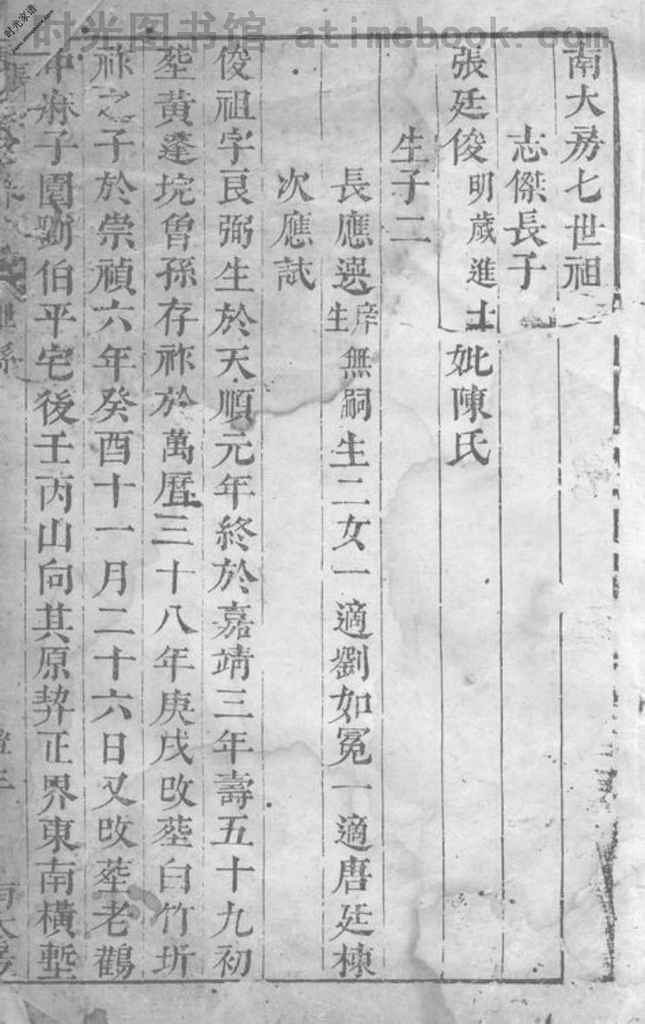 时光图书馆 atimebook.com
时光家谱
南大房七世祖
志傑長子
張廷俊明歲進士妣陳氏
生子二
長應選庠生無嗣生二女一適劉如冕一適唐廷棟
次應試
俊祖字良弼生於天順元年終於嘉靖三年壽五十九初
塟黃蓬垸曾孫存祚於萬曆三十八年庚戌改塟白竹圻
祚之子於崇禎六年癸酉十一月二十六日又改塟老鸛
中府子園劉伯平宅後壬丙山向其原契正界東南橫塹
南大房